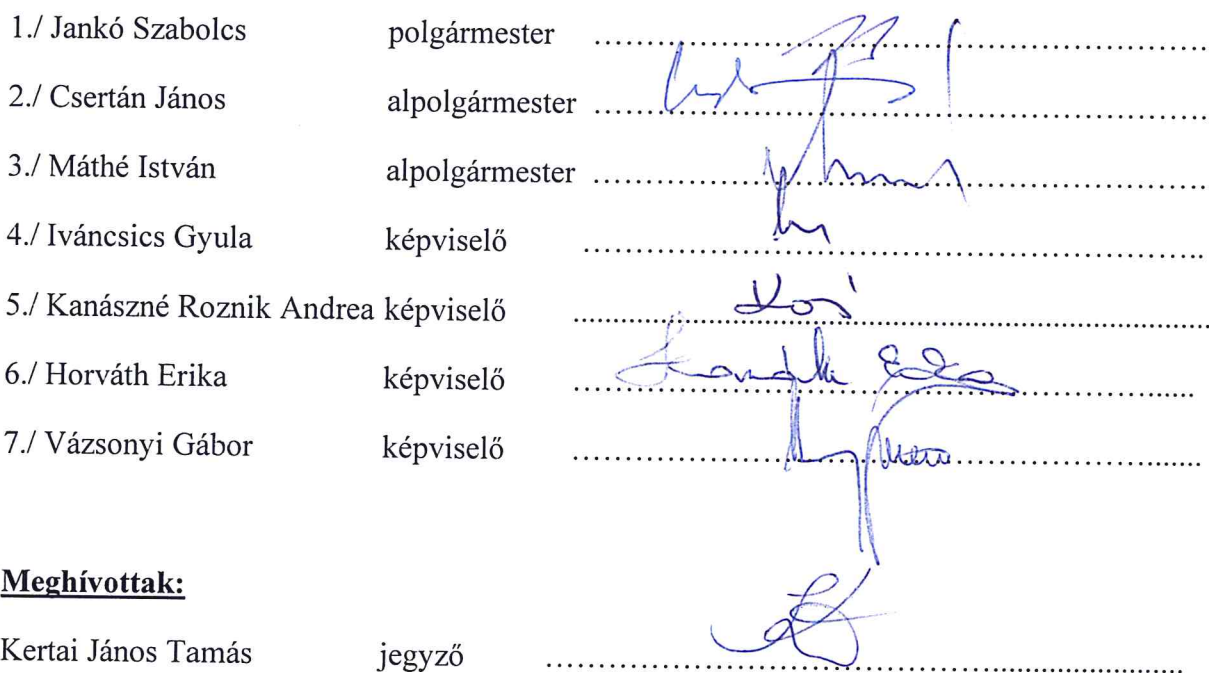 1./ Jankó Szabolcs polgármester ..........
2./ Csertán János alpolgármester ..........
3./ Máthé István alpolgármester ..........
4./ Iváncsics Gyula képviselő ..........
5./ Kanászné Roznik Andrea képviselő ..........
6./ Horváth Erika képviselő ..........
7./ Vázsonyi Gábor képviselő ..........
Meghívottak:
Kertai János Tamás jegyző ..........